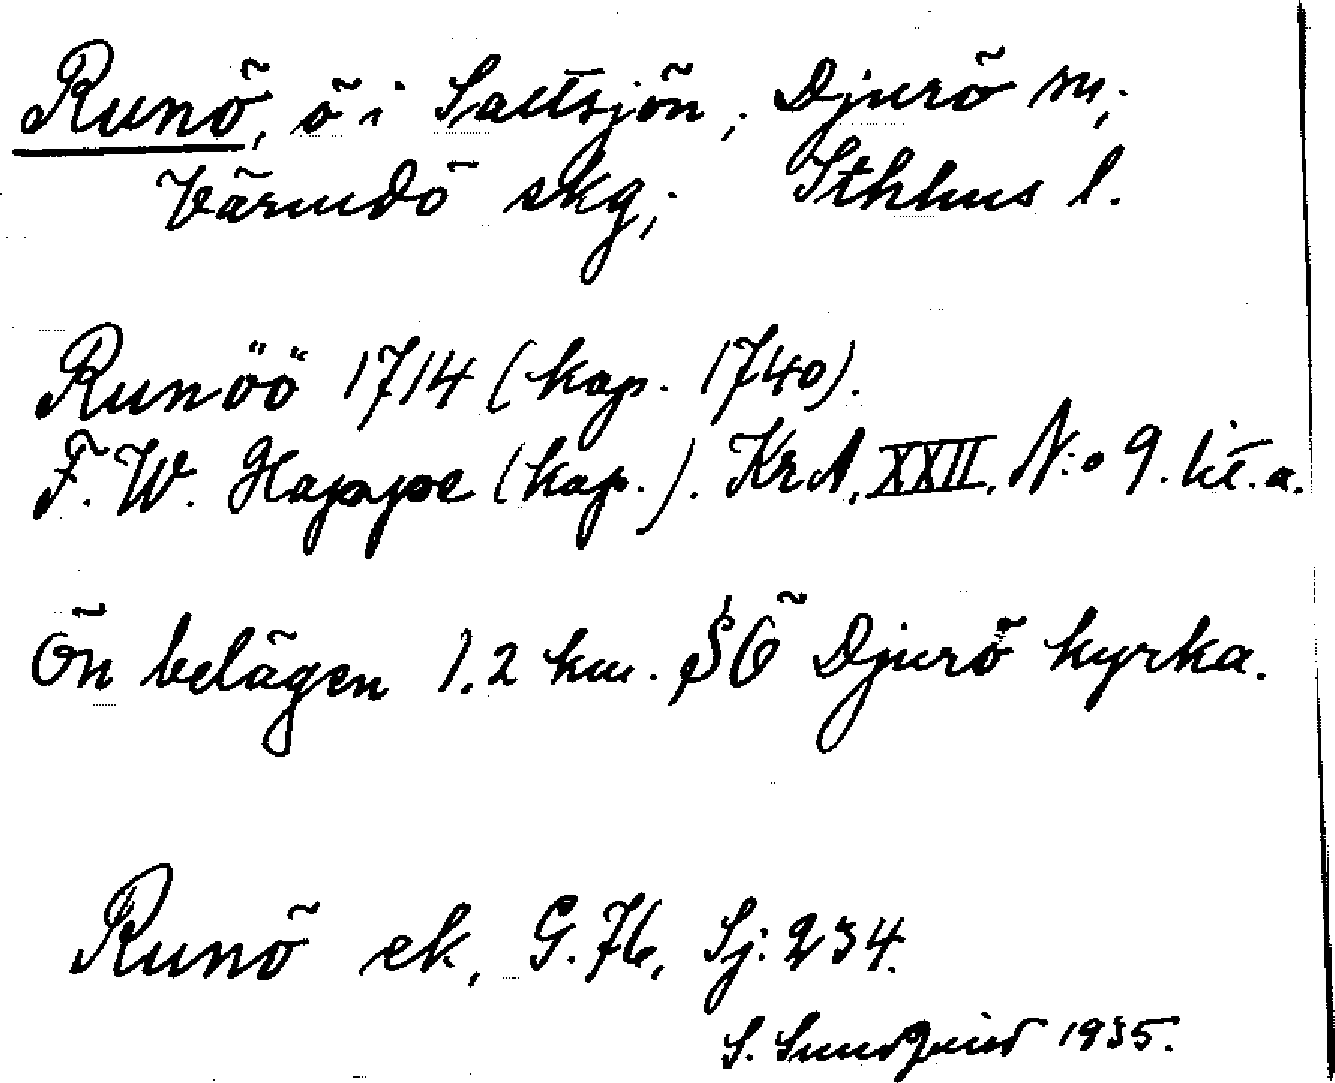 Runö, ö i Saltsjön, Djurö sn,
Värmdö skg, Sthlms l.
Runöö 1714 (kop. 1740).
F. W. Happe (kop.). KrA, XXII. N:o 9. lit. a.
Ön belägen 1.2 km. SÖ Djurö kyrka.
Runö ek, G. 76, Sj: 234.
S. Sundquist 1935.